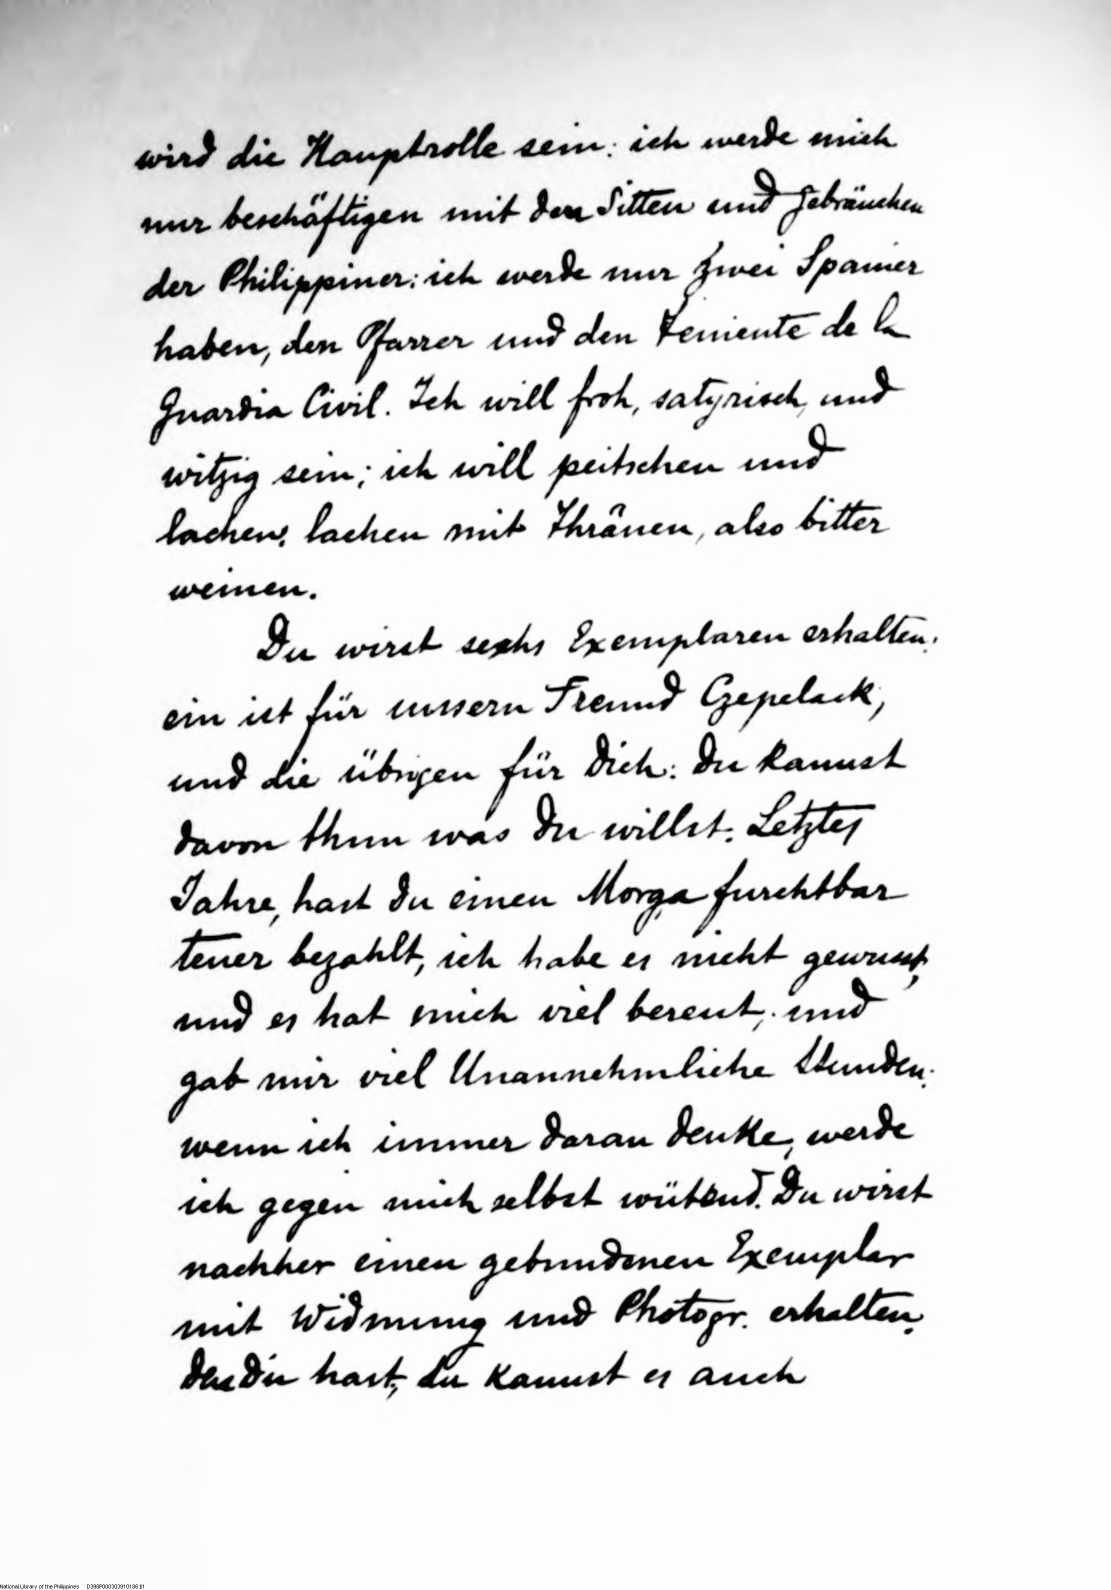 wird die Hauptrolle sein: ich werde mich
nur beschäftigen mit den Sitten und Gebräuchen
der Philippiner: ich werde nur zwei Spanier
haben, den Pfarrer und den Teniente de la
Guardia Civil. Ich will froh, satyrisch, und
witzig sein; ich will peitschen und
lachen, lachen mit Thränen, also bitter
weinen.
Du wirst sechs Exemplaren erhalten:
ein ist für unsern Freund Czepelack,
und die übrigen für Dich: Du kannst
davon thun was Du willst. Letztes
Jahre, hast Du einen Morga furchtbar
teuer bezahlt, ich habe es nicht gewusst,
und es hat mich viel bereut, und
gab mir viel Unannehmliche Stunden:
wenn ich immer daran denke, werde
ich gegen mich selbst wütend. Du wirst
nachher einen gebundenen Exemplar
mit Widmung und Photogr. erhalten.
Du hast, du kannst es auch
National Library of the Philippines